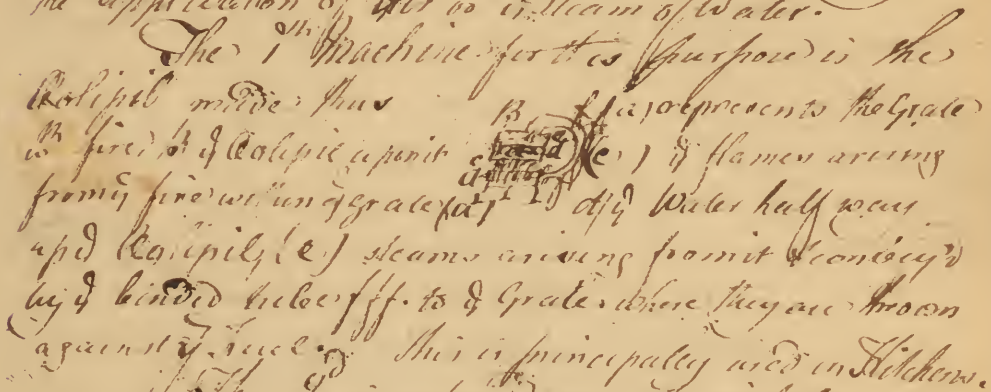 the application of          is in steam of Water.
The 1th Machine for this purpose is the
Eolipile made thus B ff (a) represents the Grate
B fire, b ỹ Eolipile upon it d (c) ỹ flames arising
from ỹ fire within ỹ grate (a) d, ỹ Water half way
up ỹ Eolipily (e) steams arising from it & convey'd
by ỹ bended tube fff. to ỹ Grate where they are thrown
against ỹ fuel. This is principally used in Kitchens.
The